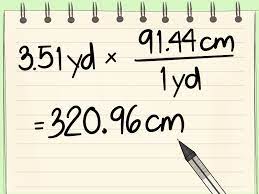 3.51yd × 91.44cm / 1yd
= 320.96cm